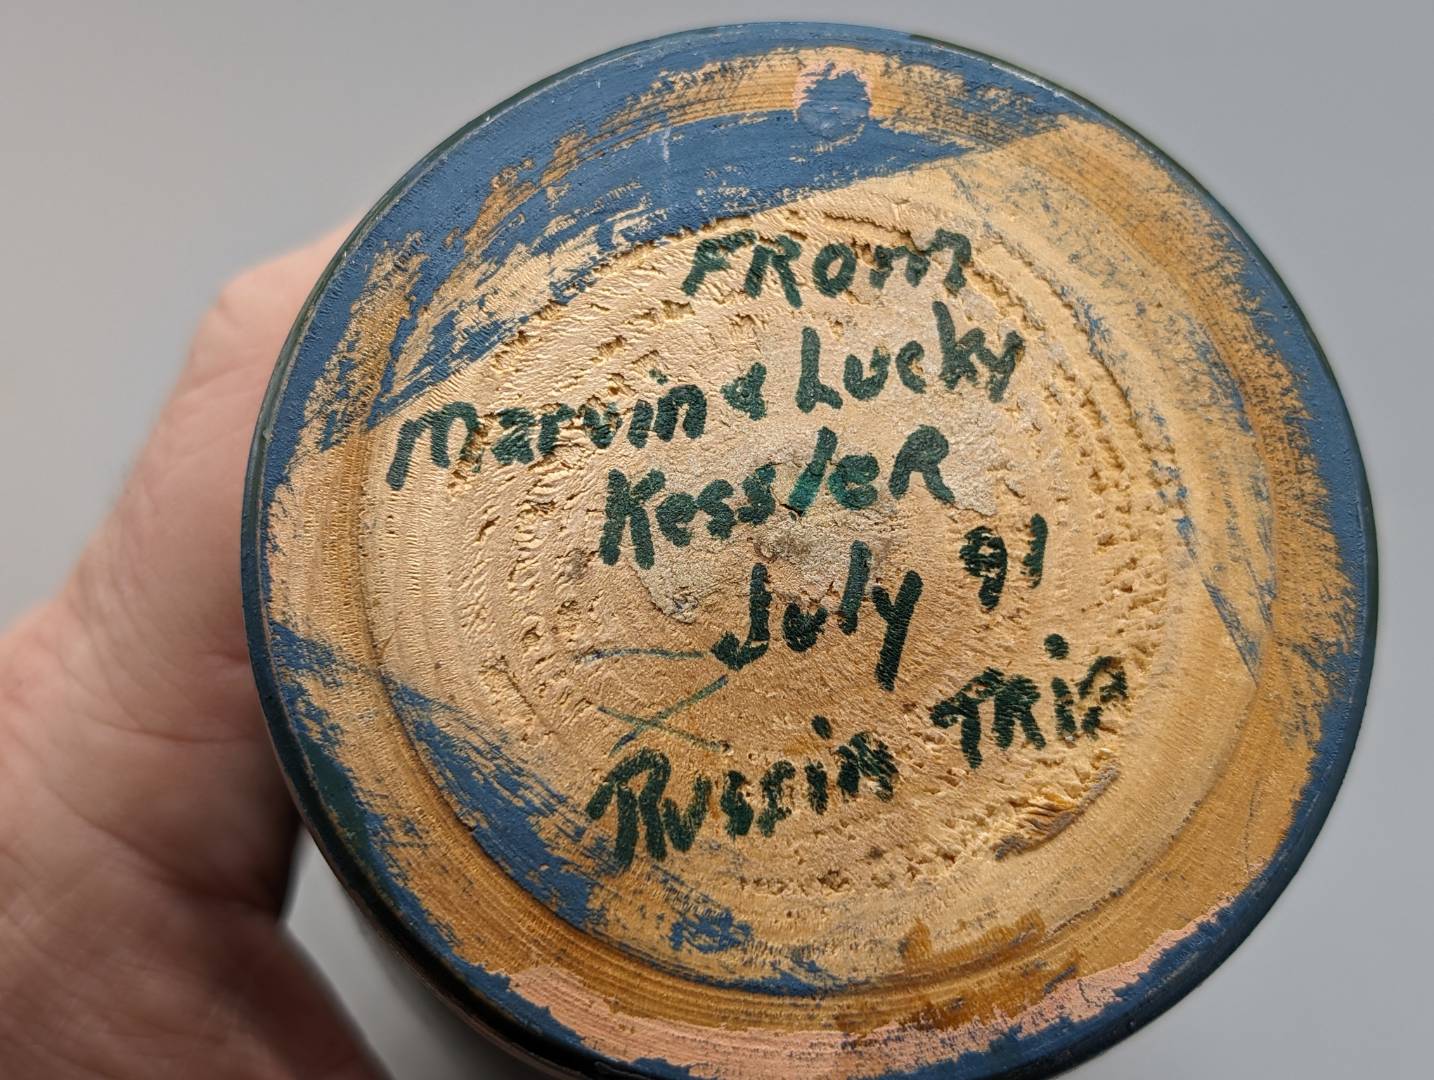 FROM
Marvin & Lucky
KessleR
July 91
Russian TRip